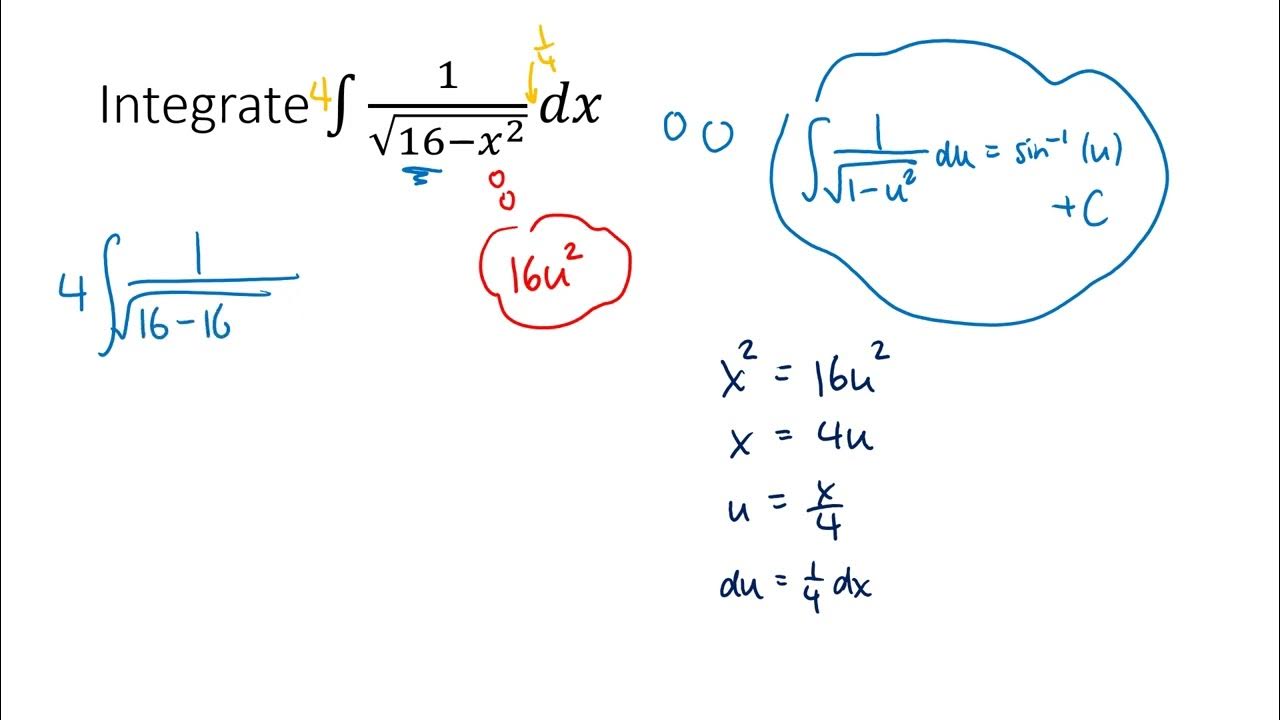 Integrate 4 ∫ 1/√(16−x²) 1/4 dx
∫ 1/√(1−u²) du = sin⁻¹(u)
+ C
16u²
4 ∫ 1/√(16−16
x² = 16u²
x = 4u
u = x/4
du = 1/4 dx